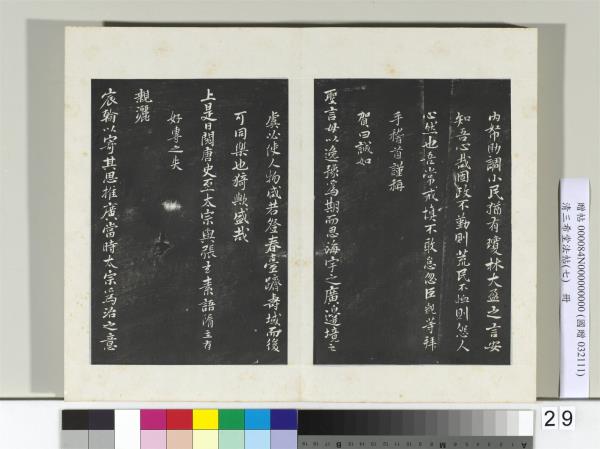 內帑助調小民猶有瓊林大盈之言安
知吾心哉國政不勤則荒民不恤則怨人
心然也吾常戒慎不敢怠忽臣觀等拜
手稽首謹稱
賀曰誠如
聖言毋以逸豫為期而思海宇之廣邊境之
虞必使人物咸若登春臺躋壽域而後
可同樂也猗歟盛哉
上是日閱唐史至太宗與張玄素語隋主有
好專之失
親灑
宸翰以寄其思推廣當時太宗為治之意
贈帖 000084N000000000 (國贈 032111)
清三希堂法帖(七) 冊
29